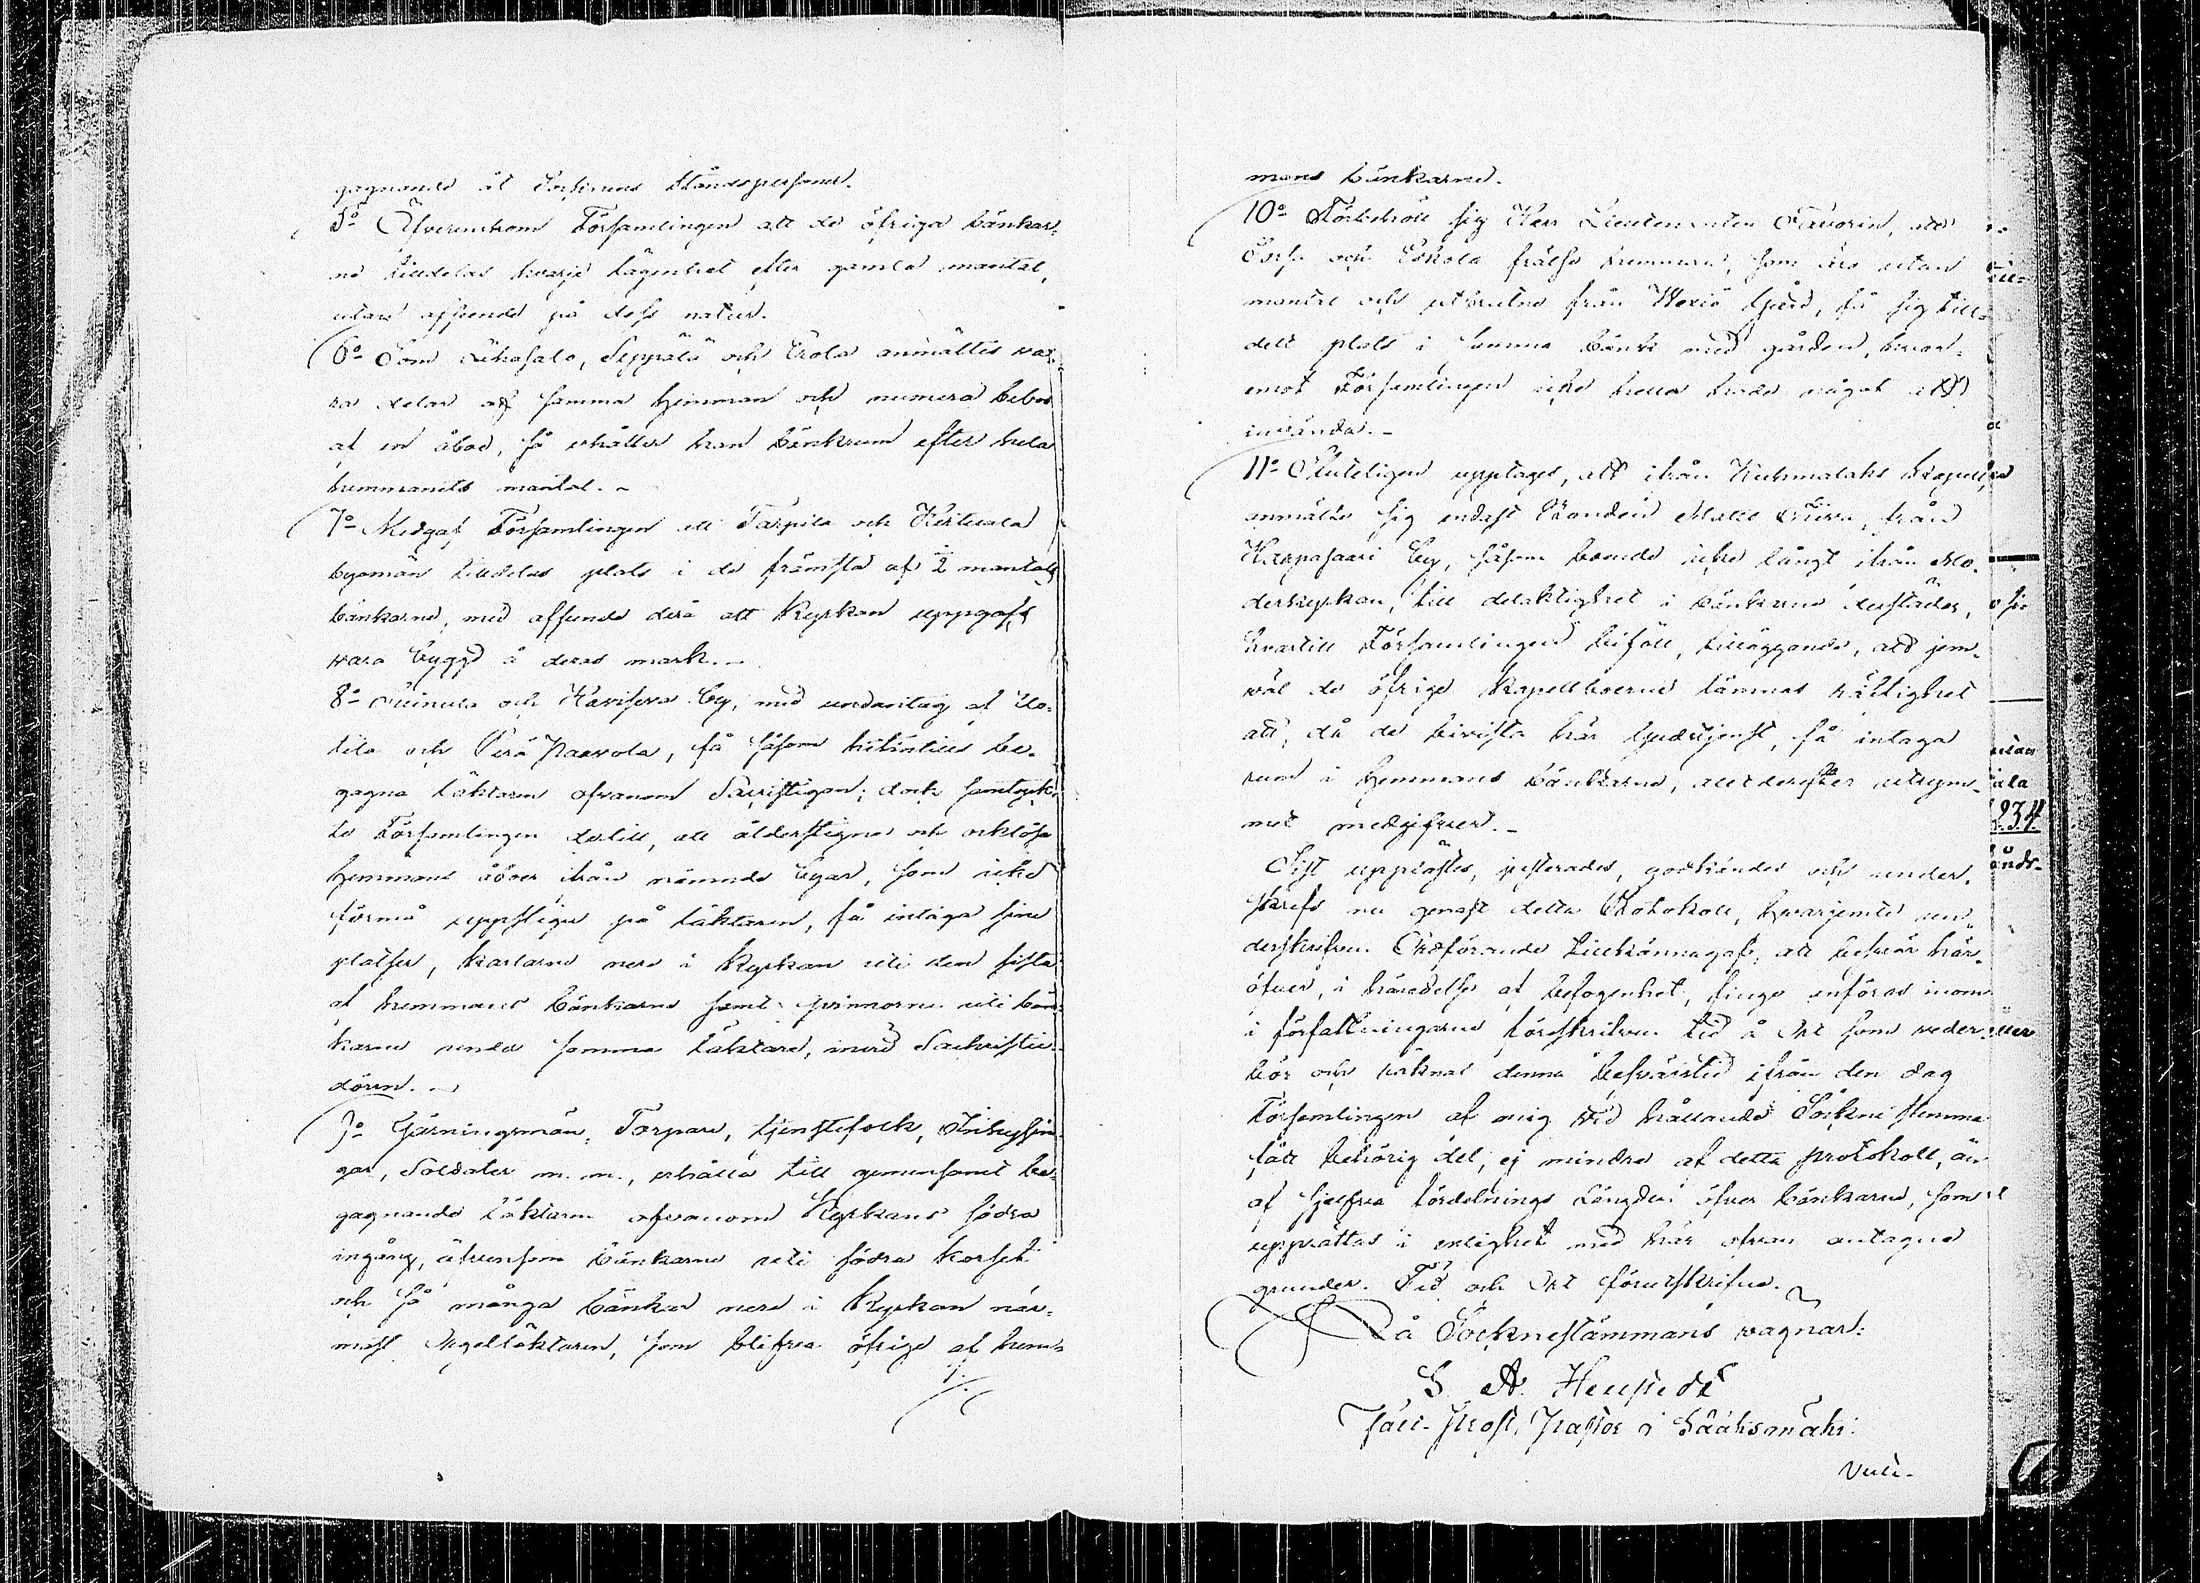 gagnande åt Socknens Ståndspersoner.
5º Öfverenskom Församlingen att de öfriga bänkar=
ne tilldelas hvarje lägenhet efter gamla mantal,
utan afseende på dess natur.
6º Som Uhosalo, Seppälä och Erola anmältes va=
ra delar af samma hemman och numera bebos
af en åbo, så erhåller han bänkrum efter hela
hemmanets mantal. -
7º Medgaf Församlingen att Tarpila och Kertuala
byamän tilldelas plats i de främsta af ½ mantals
bänkarne, med afseende derå att Kyrkan uppgafs
vara byggd å deras mark. -
8º och by, med undantag af Uo=
tila och Perä Paavola, få såsom hittintills be=
gagna läktaren ofvanom Sacristigan; dock samtyck=
te Församlingen dertill, att ålderstigne och orklösa
hemmans åboer ifrån nämnde byar, som icke
förmå uppstiga på läktaren, få intaga sine
platser, karlarne nere i Kyrkan uti den sista
af hemmans bänkarne samt qvinnorne uti bän=
karne under samma läktare, invid Sackristie
dören. -
9º Gärningsmän, Torpare, tjenstefolk, Inhysin=
gar, Soldater m. m., erhålla till gemensamt be=
gagnande läktaren ofvanom Kyrkans södra
ingång, äfvensom bänkarne uti södra korset
och så många bänkar nere i Kyrkan när=
mast Orgelläktaren, som blifva öfrige af hem=
mans bänkarne.
10º Förbehöll sig Herr Lieutenanten Favorin, att
Torp och Eskola frälse hemman, som äro utan
mantal och utbrutne från Wexiö Gård, få sig till=
delt plats i samma bänk med gården, hvar=
emot Församlingen icke heller hade något att
invända. -
11º Sluteligen upptages, att ifrån Kuhmalaks Kapell,
anmälte sig endast Bonden Matts från
Karpasaari by, såsom boende icke långt ifrån Mo=
derkyrkan, till delaktighet i bänkarne derstädes,
hvartill Församlingen biföll, tilläggande, att jem=
väl de öfrige Kapellboerne lämnas rättighet
att, då de bivista här Gudstjenst, få intaga
rum i hemmans bänkarne, allt derefter utrym=
met medgifver. -
Sist upplästes, justerades, godkändes och under=
skrefs nu genast detta Protokoll, hvarjemte un=
derskrifven Ordförande tillkännagaf, att besvär här=
öfver, i händelse af befogenhet, finge anföras inom
i författningarne föreskrifven tid å Ort som veder=
bör och räknas denna besvärstid ifrån den dag
Församlingen af mig vid hållande Sockne stämma
fått behörig del, ej mindre af detta protokoll, än
af sjelfva fördelnings Längden öfver bänkarne, som
upprättas i enlighet med här ofvan antagne
grunder. Tid och Ort förutskrifne.
På Socknestämmans vägnar:
Prost, Pastor i Sääksmäki.
234